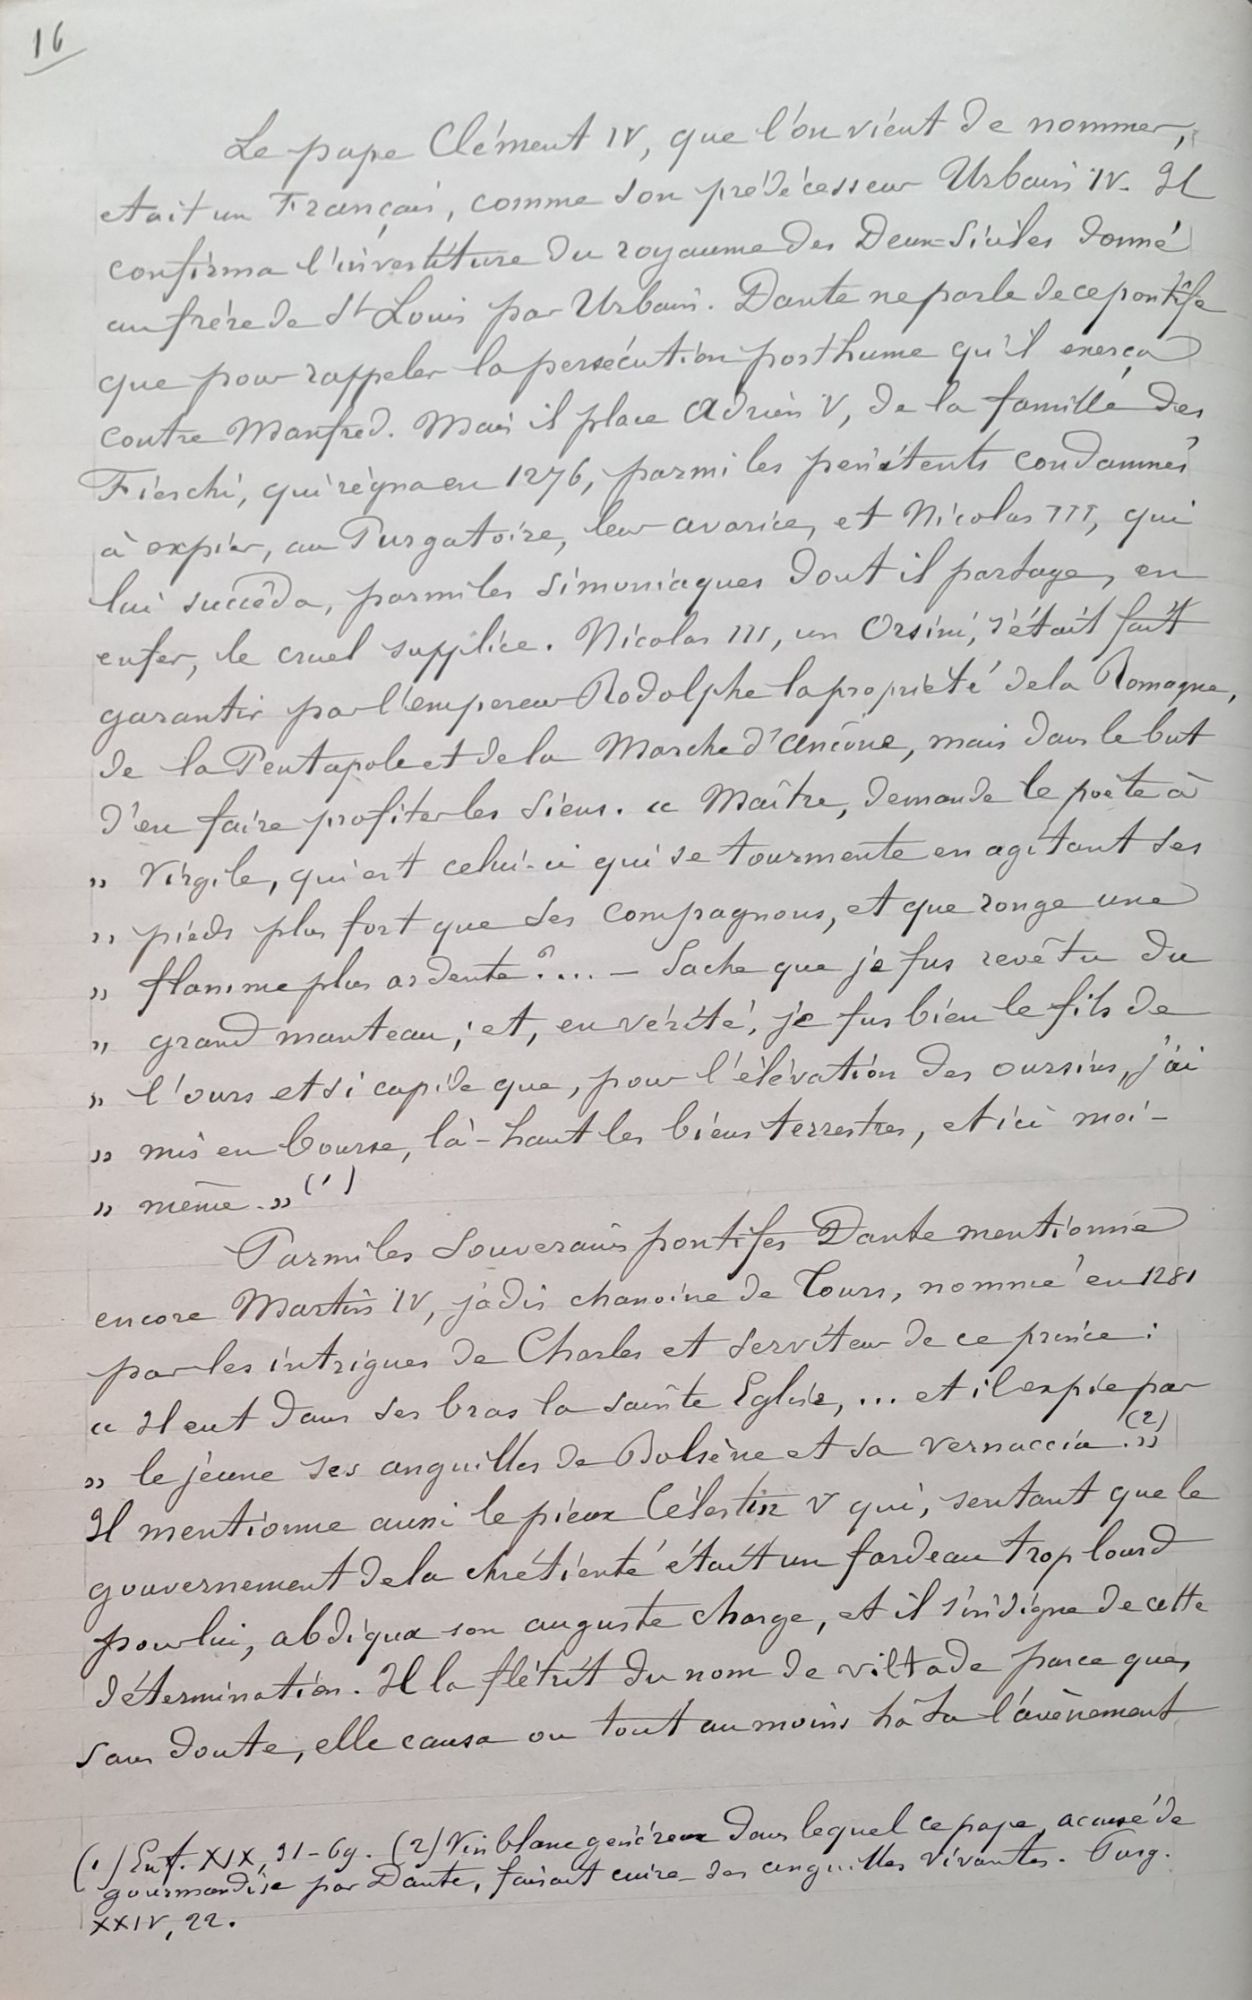 16
Le pape Clément IV, que l'on vient de nommer,
etait un Français, comme son prédécesseur Urbain IV. Il
confirma l'investiture du royaume des Deux-Siciles donné
au frère de St Louis par Urbain. Dante ne parle de ce pontife
que pour rappeler la persécution posthume qu'il exerça
contre Manfred. Mais il place Adrien V, de la famille des
Fieschi, qui régna en 1276, parmi les penitents condamnés
à expier, au Purgatoire, leur avarice, et Nicolas III, qui
lui succéda, parmi les simoniaques dont il partage, en
enfer, le cruel supplice. Nicolas III, un Orsini, s'était fait
garantir par l'empereur Rodolphe la propriété de la Romagne,
de la Pentapole et de la Marche d'Ancône, mais dans le but
d'en faire profiter les siens. « Maître, demande le poète à
» Virgile, qui est celui-ci qui se tourmente en agitant ses
» pieds plus fort que ses compagnons, et que ronge une
» flamme plus ardente ?... — Sache que je fus revêtu du
» grand manteau ; et, en vérité, je fus bien le fils de
» l'ours et si cupide que, pour l'élévation des oursins, j'ai
» mis en bourse, là-haut les biens terrestres, et ici moi-
» même. » (1)
Parmi les souverains pontifes Dante mentionne
encore Martin IV, jadis chanoine de Tours, nommé en 1281
par les intrigues de Charles et serviteur de ce prince :
« Il eut dans ses bras la sainte Eglise, ... et il expie par
» le jeune ses anguilles de Bolsène et sa vernaccia. » (2)
Il mentionne aussi le pieux Célestin V qui, sentant que le
gouvernement de la chrétienté était un fardeau trop lourd
pour lui, abdiqua son auguste charge, et il s'indigne de cette
détermination. Il la flétrit du nom de viltade parce que,
sans doute, elle causa ou tout au moins hâta l'avènement
(1) Enf. XIX, 31-69. (2) Vin blanc généreux dans lequel ce pape, accusé de
gourmandise par Dante, faisait cuire des anguilles vivantes. Purg.
XXIV, 22.